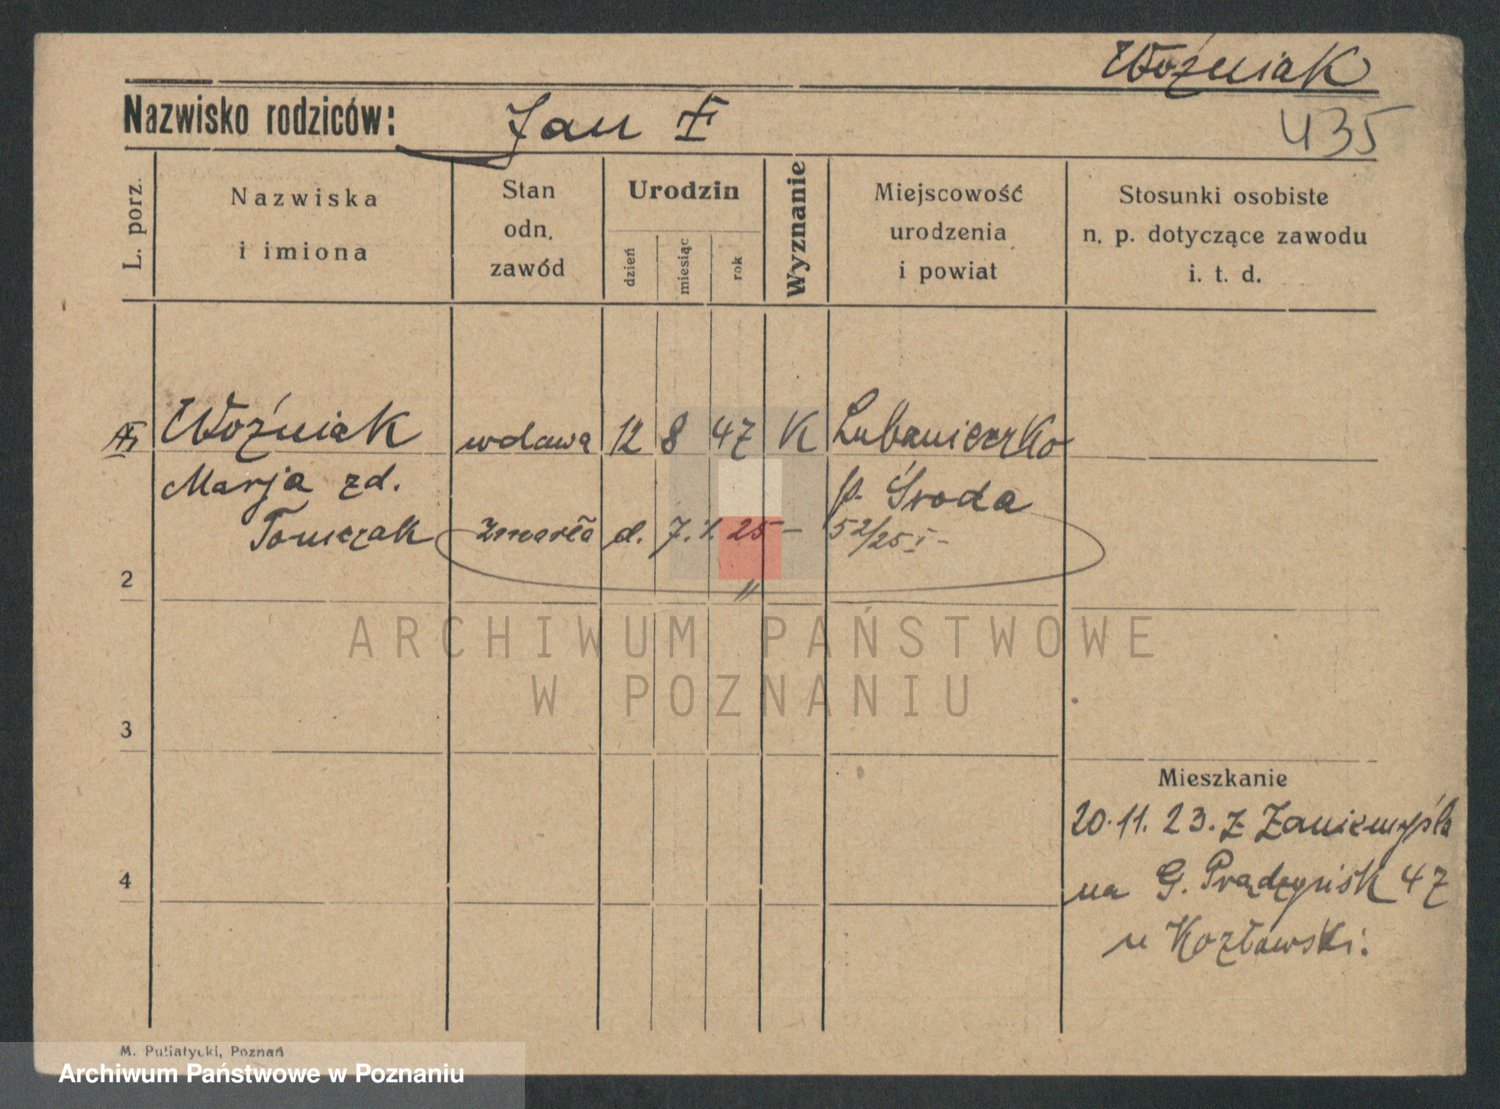 Woźniak
Nazwisko rodziców: Jan
435
L. porz.
Nazwiska
i imiona
Stan
odn.
zawód
Urodzin
dzień
miesiąc
rok
Wyznanie
Miejscowość
urodzenia
i powiat
Stosunki osobiste
n. p. dotyczące zawodu
i. t. d.
Woźniak wdowa 12 8 47 K Lubanieczko
Marja zd. p. Środa
Tomczak zmarła d. 7. 1. 25 – 52/25 I –
2
ARCHIWUM PAŃSTWOWE
W POZNANIU
3
Mieszkanie
20. 11. 23. z Zaniemyśla
4
na G. Prądzyńsk 47
u Kozławski.
M. Putiatycki, Poznań
Archiwum Państwowe w Poznaniu